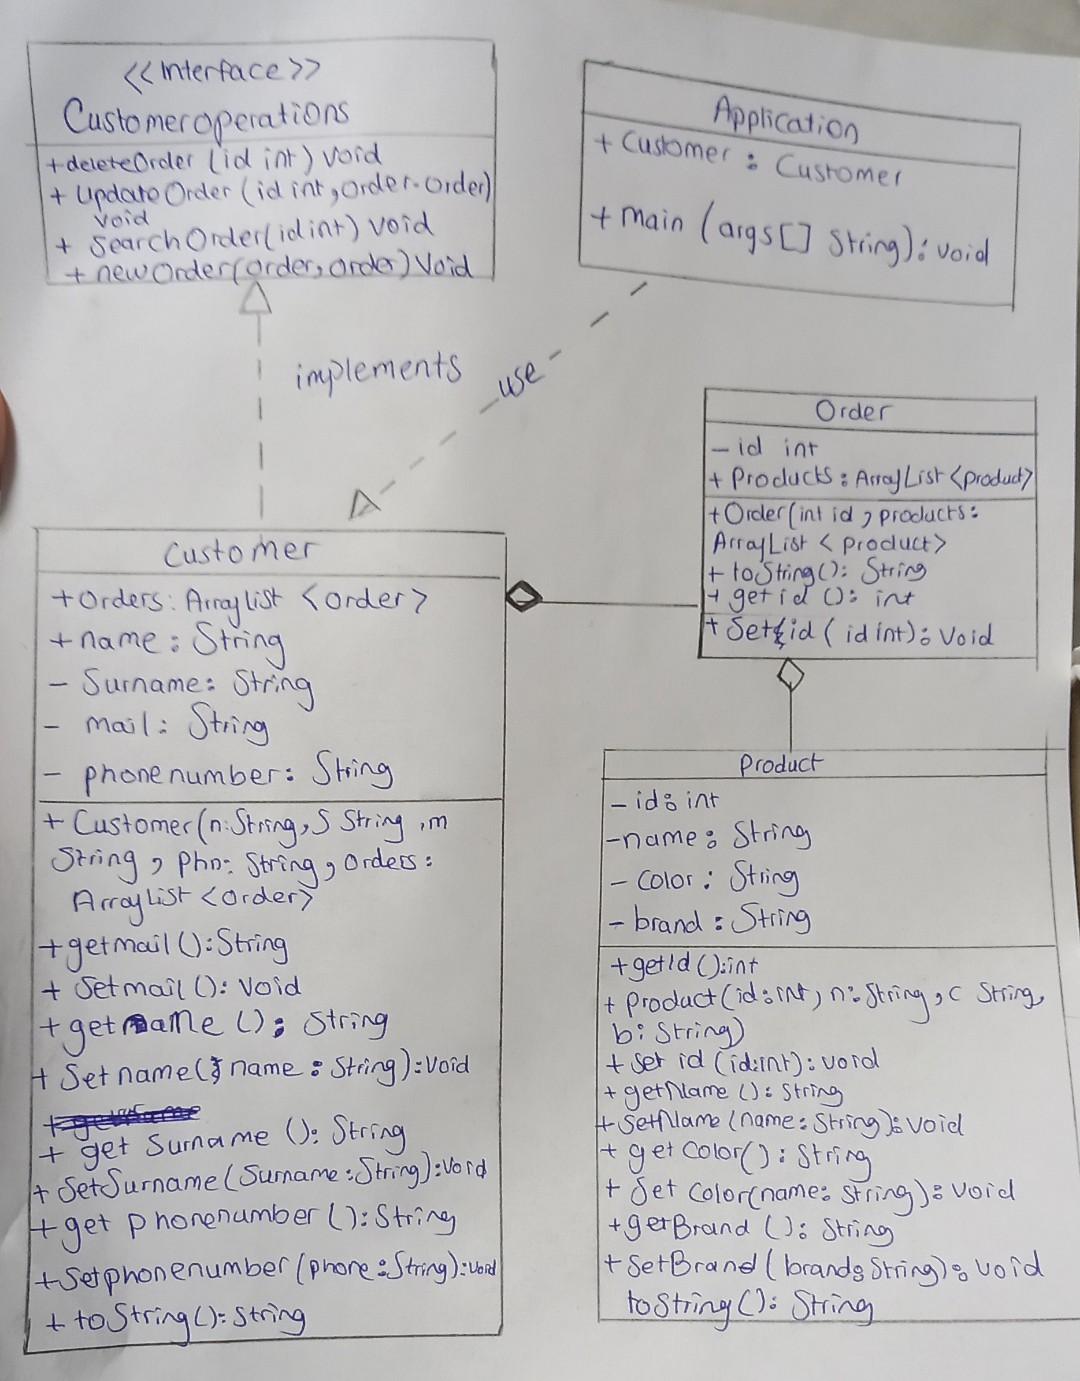 <<Interface>>
Customeroperations
+deleteOrder (id int) void
+ UpdateOrder (id int, order.order)
void
+ SearchOrder(id int) void
+ newOrder(order, order) Void
Application
+ Customer : Customer
+ main (args[] String): void
implements
use
Order
- id int
+ Products: ArrayList <product>
+Order(int id, products:
ArrayList <product>
+ toString(): String
+ get id (): int
+ Set id ( id int): Void
Customer
+Orders: Arraylist <order>
+name: String
- Surname: String
- mail: String
- phonenumber: String
+ Customer(n:String, S String ,m
String, phn: String, orders:
ArrayList <order>
+getmail ():String
+ Setmail (): Void
+getname (): String
+ Setname( name : String):Void
+ get Surname (): String
+ SetSurname(Surname:String):Void
+ get phonenumber ():String
+Setphonenumber (phone:String):void
+ toString():String
Product
- id: int
-name: String
- Color: String
- brand: String
+getId ():int
+ product(id:int, n:String, c String,
b: String)
+ set id (id:int): void
+ getName (): String
+ SetName (name: String): void
+ get Color(): String
+ Set Color(name: String): Void
+getBrand (): String
+ SetBrand ( brand: String): void
toString(): String